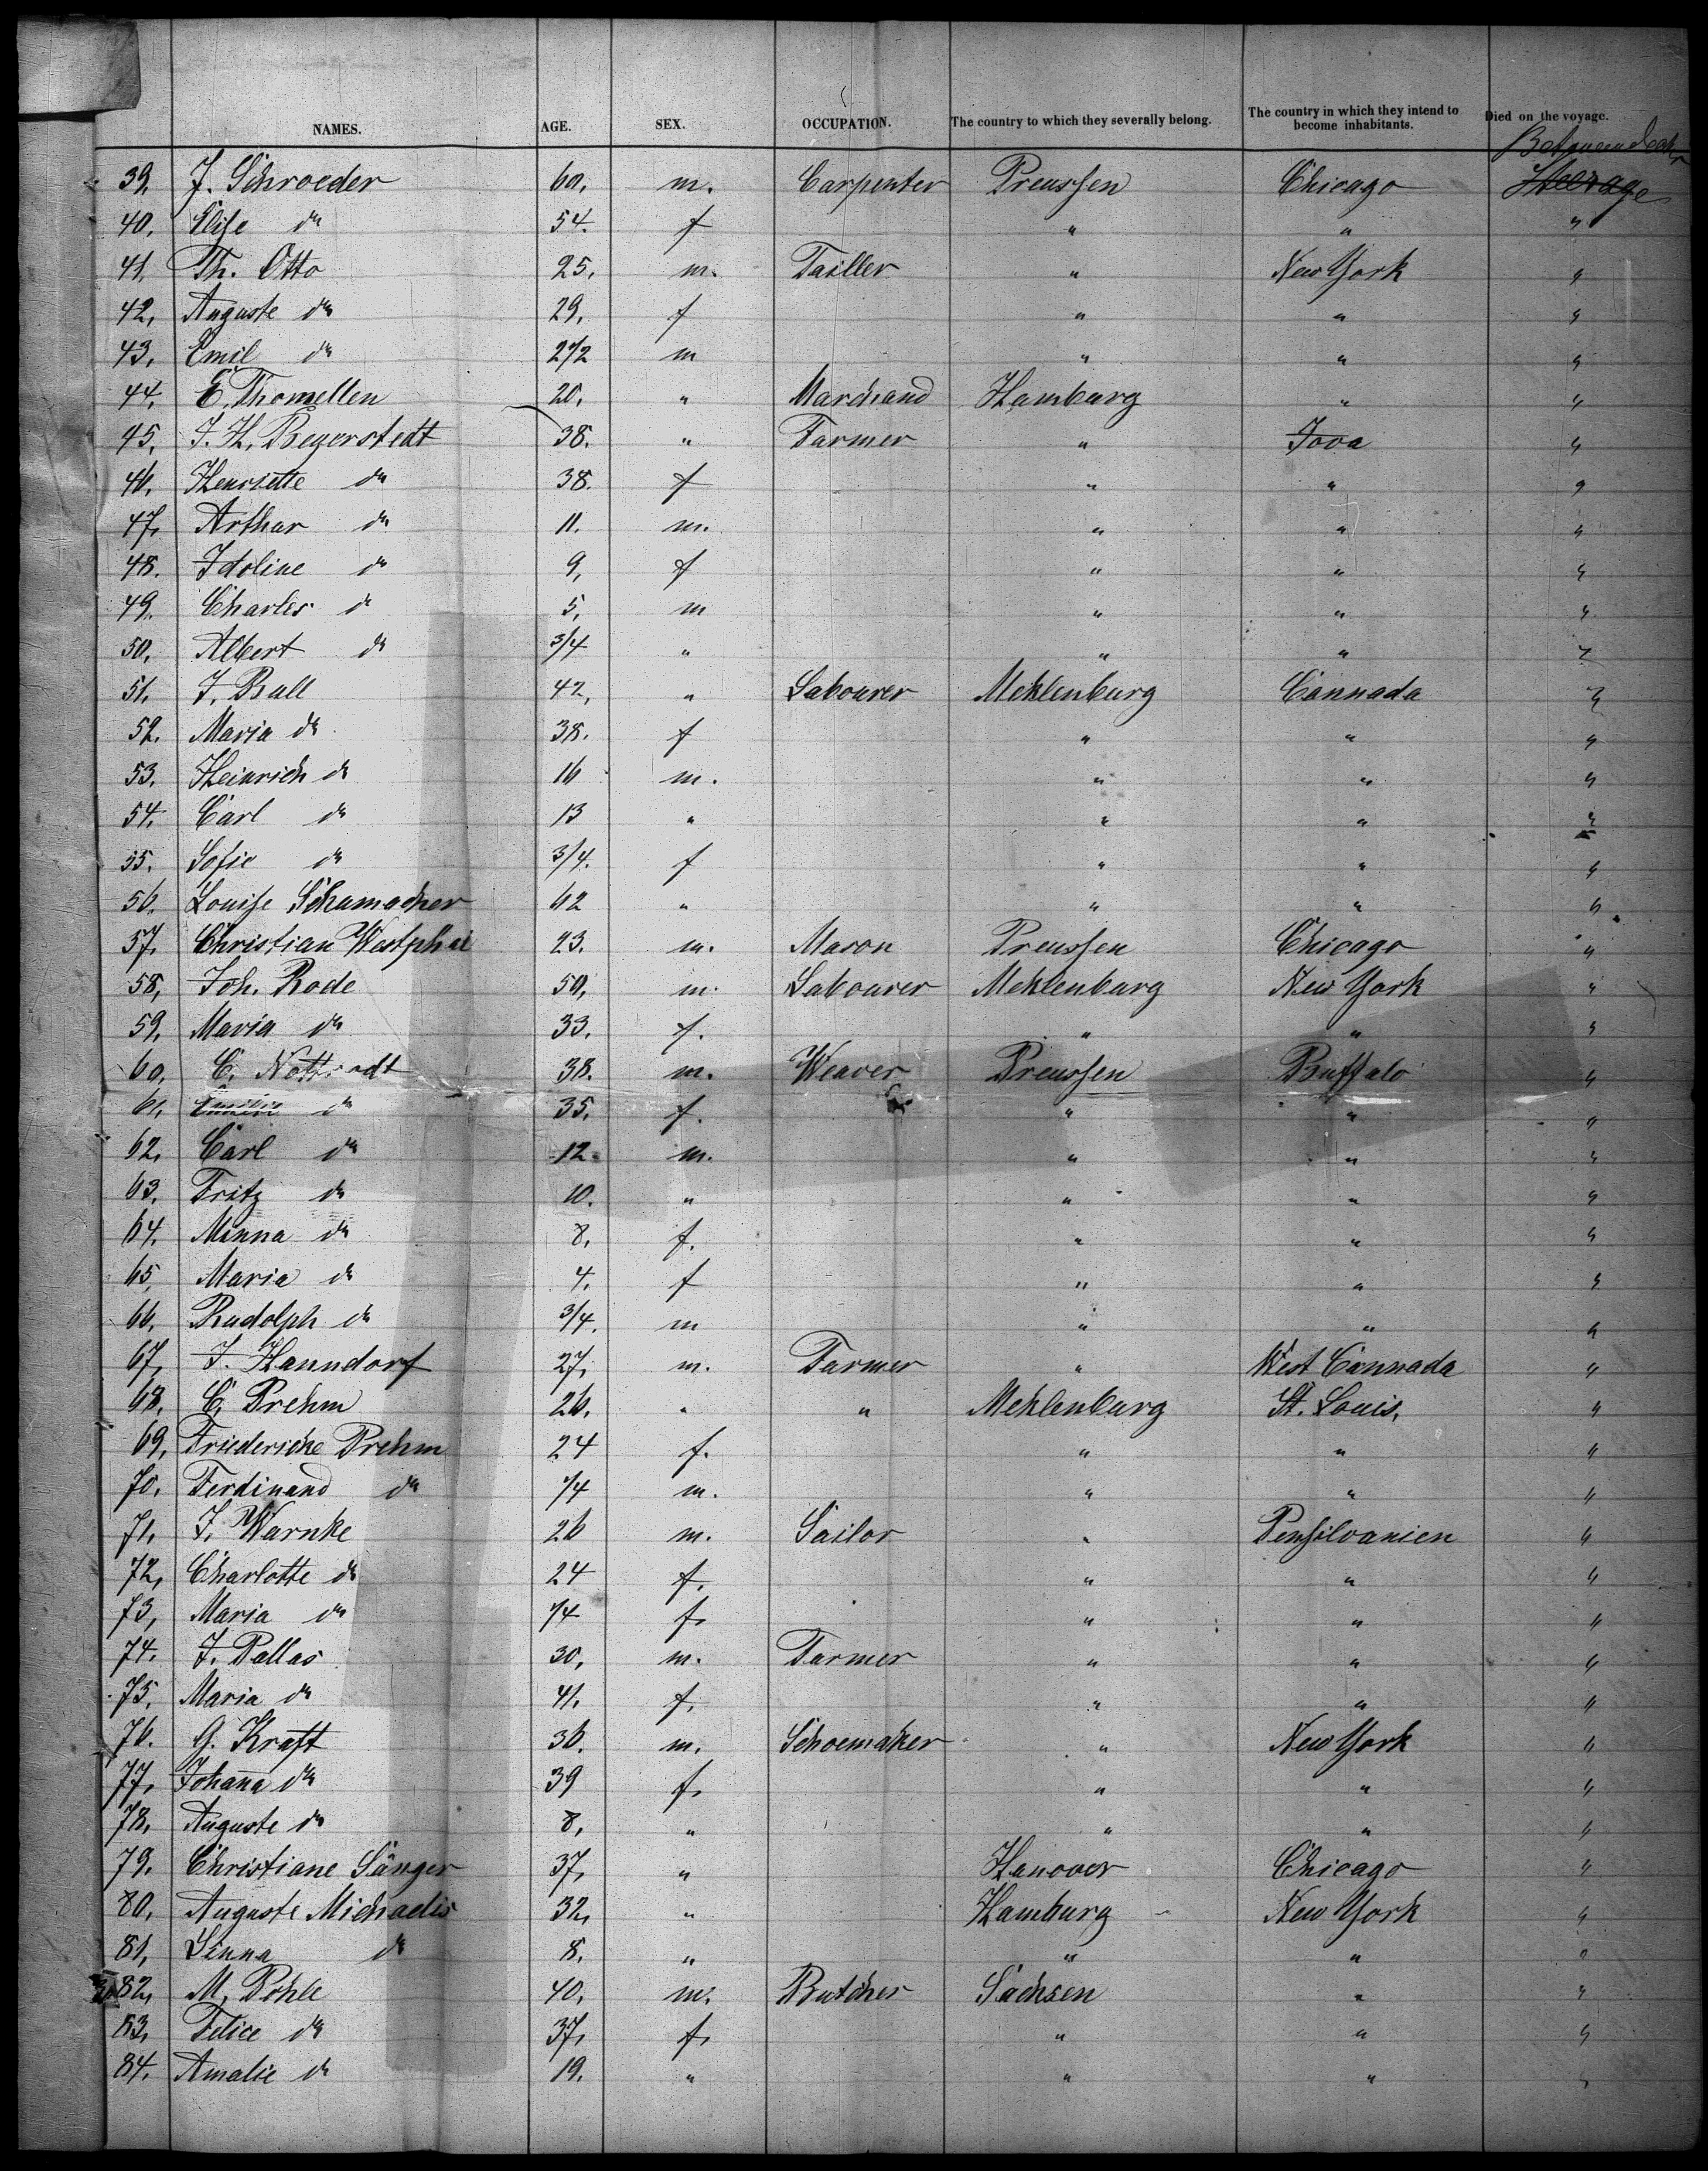 NAMES. AGE. SEX. OCCUPATION. The country to which they severally belong. The country in which they intend to become inhabitants. Died on the voyage.
Between deck
39, J. Schroeder 60, m. Carpenter Preussen Chicago Steerage
40, Elise do 54. f " " "
41, Th. Otto 25, m. Tailler " New York "
42, Auguste do 29, f " " "
43, Emil do 2 1/2 m " " "
44, E. Thomellen 20, " Marchand Hamburg " "
45, J. H. Beyerstedt 38. " Farmer " Iova "
46, Henriette do 38. f " " "
47, Arthur do 11. m. " " "
48. Idoline do 9, f " " "
49. Charles do 5, m " " "
50, Albert do 3/4 " " " "
51, J. Bull 42, " Labourer Meklenburg Cannada "
52. Maria do 38. f " " "
53. Heinrich do 16 m. " " "
54. Carl do 13 " " " "
55. Sofie do 3/4. f " " "
56. Louise Schumacher 62 " " " "
57, Christian Westphal 23. m. Mason Preussen Chicago "
58, Joh. Rode 50, m. Labourer Meklenburg New York "
59, Maria do 33. f. " " "
60, C. 38. m. Weaver Preussen Buffalo "
61, do 35, f. " " "
62, Carl do 12. m. " " "
63, Fritz do 10. " " " "
64, Minna do 8, f. " " "
65, Maria do 4, f " " "
66, Rudolph do 3/4. m " " "
67, J. Hanndorf 27, m. Farmer " West Cannada "
68, C. Prehm 26, " " Meklenburg St. Louis, "
69, Friederike Prehm 24 f. " " "
70, Ferdinand do 1/4 m. " " "
71, J. Warnke 26 m. Sailor " Pensilvanien "
72, Charlotte do 24 f. " " "
73, Maria do 1/4 f. " " "
74. J. Pallas 30, m. Farmer " " "
75, Maria do 41. f. " " "
76. G. Kraft 36. m. Schoemaker " New York "
77, Johanna do 39 f. " " "
78, Auguste do 8, " " " "
79. Christiane Sänger 37, " Hanover Chicago "
80, Auguste Michaelis 32, " Hamburg New York "
81, Linna do 8. " " " "
82, M. Pohle 40, m. Butcher Sachsen " "
83, Felice do 37, f. " " "
84. Amalie do 19. " " " "